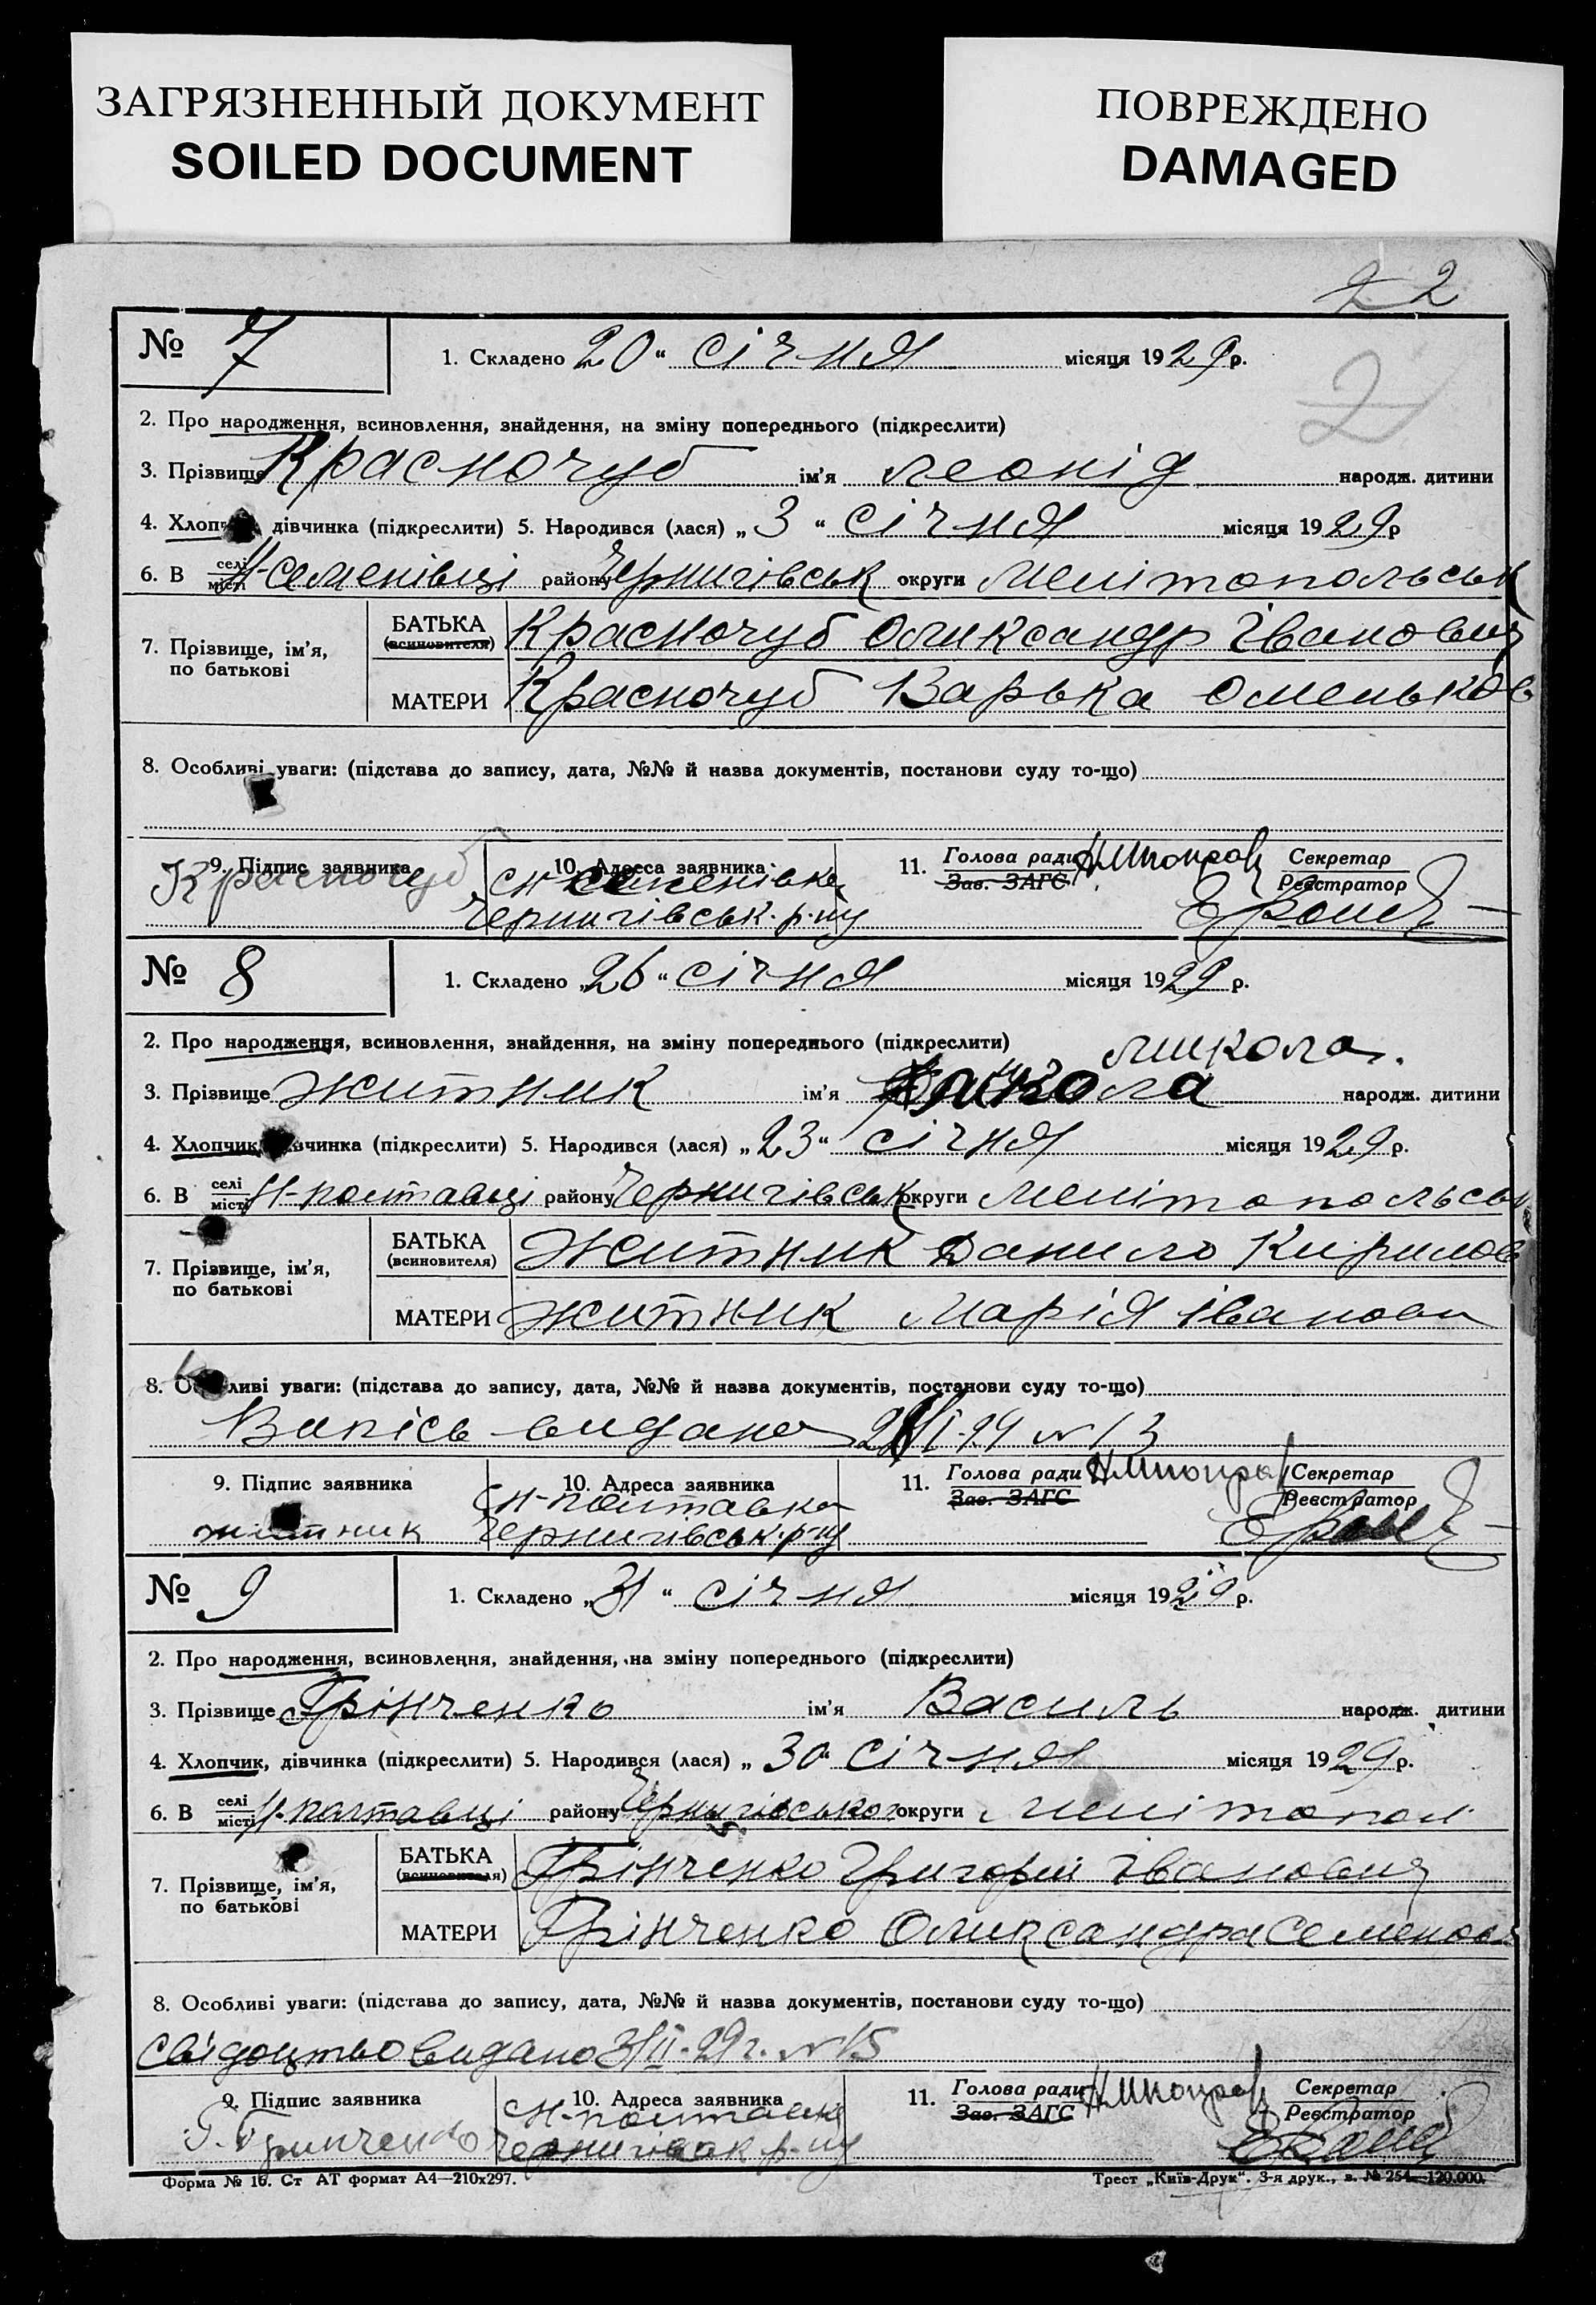 ЗАГРЯЗНЕННЫЙ ДОКУМЕНТ
SOILED DOCUMENT
ПОВРЕЖДЕНО
DAMAGED
2 2
№ 7
1. Складено 20 “ січня місяця 1929 р.
2
2. Про народження, всиновлення, знайдення, на зміну попереднього (підкреслити)
3. Прізвище Красночуб ім'я Леонід народж. дитини
4. Хлопч дівчинка (підкреслити) 5. Народився (лася) „ 3 “ січня місяця 1929 р
6. В селі місті Н-Семенівці району Чернигівськ округи Мелітопольськ
7. Прізвище, ім'я, по батькові
БАТЬКА (всиновителя) Красночуб Олександр Іванович
МАТЕРИ Красночуб Варька Омельков
8. Особливі уваги: (підстава до запису, дата, №№ й назва документів, постанови суду то-що)
9. Підпис заявника 10. Адреса заявника 11. Голова ради Зав. ЗАГС Секретар Реєстратор
Красночуб с Н Семенівка
Чернигівськ. р-ну
№ 8
1. Складено „26“ січня місяця 1929 р.
2. Про народження, всиновлення, знайдення, на зміну попереднього (підкреслити)
Микола
3. Прізвище Житник ім'я народж. дитини
4. Хлопчик, вчинка (підкреслити) 5. Народився (лася) „ 23 “ січня місяця 1929 р.
6. В селі місті Н-Полтавці району Чернигівськ округи Мелітопольськ
7. Прізвище, ім'я, по батькові
БАТЬКА (всиновителя) Житник Данило Кирилов
МАТЕРИ Житник Марія Іванови
8. О ливі уваги: (підстава до запису, дата, №№ й назва документів, постанови суду то-що)
Випісь видано №13
9. Підпис заявника 10. Адреса заявника 11. Голова ради Зав. ЗАГС Секретар Реєстратор
Житник с Н-Полтавка
Чернигівськ. р-ну
№ 9
1. Складено „31“ січня місяця 1929 р.
2. Про народження, всиновлення, знайдення, на зміну попереднього (підкреслити)
3. Прізвище Грінченко ім'я Василь народж. дитини
4. Хлопчик, дівчинка (підкреслити) 5. Народився (лася) „ 30 “ січня місяця 1929 р.
6. В селі місті Н-Полтавці району Чернигівського округи Мелітопол
7. Прізвище, ім'я, по батькові
БАТЬКА (всиновителя) Грінченко Григорій Іванович
МАТЕРИ Грінченко Олександра Семенов
8. Особливі уваги: (підстава до запису, дата, №№ й назва документів, постанови суду то-що)
Свідоцтво видано 3/II-29 г. №15
9. Підпис заявника 10. Адреса заявника 11. Голова ради Зав. ЗАГС Секретар Реєстратор
Г. Гринченко с Н-Полтавка
Чернигівськ р-ну
Форма № 16. Ст АТ формат А4—210х297.
Трест „Київ-Друк“. 3-я друк., з. № 254—120.000.